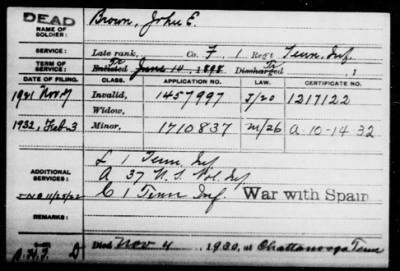 DEAD
NAME OF SOLDIER: Brown, John E.
SERVICE: Late rank, Co. F, 1 Reg't Tenn. Inf.
TERM OF SERVICE: Enlisted June 14, 1898 Discharged , 1
DATE OF FILING. CLASS. APPLICATION NO. LAW. CERTIFICATE NO.
1921 Nov 7 Invalid, 1457997 J/20 1217122
Widow,
1932, Feb 3 Minor, 1710837 M/26 A-10-14-32
ADDITIONAL SERVICES:
L 1 Tenn. Inf
A 37 U.S. Vol. Inf
C 1 Tenn Inf. War with Spain
REMARKS:
D Died Nov 4, 1930, at Chattanooga Tenn